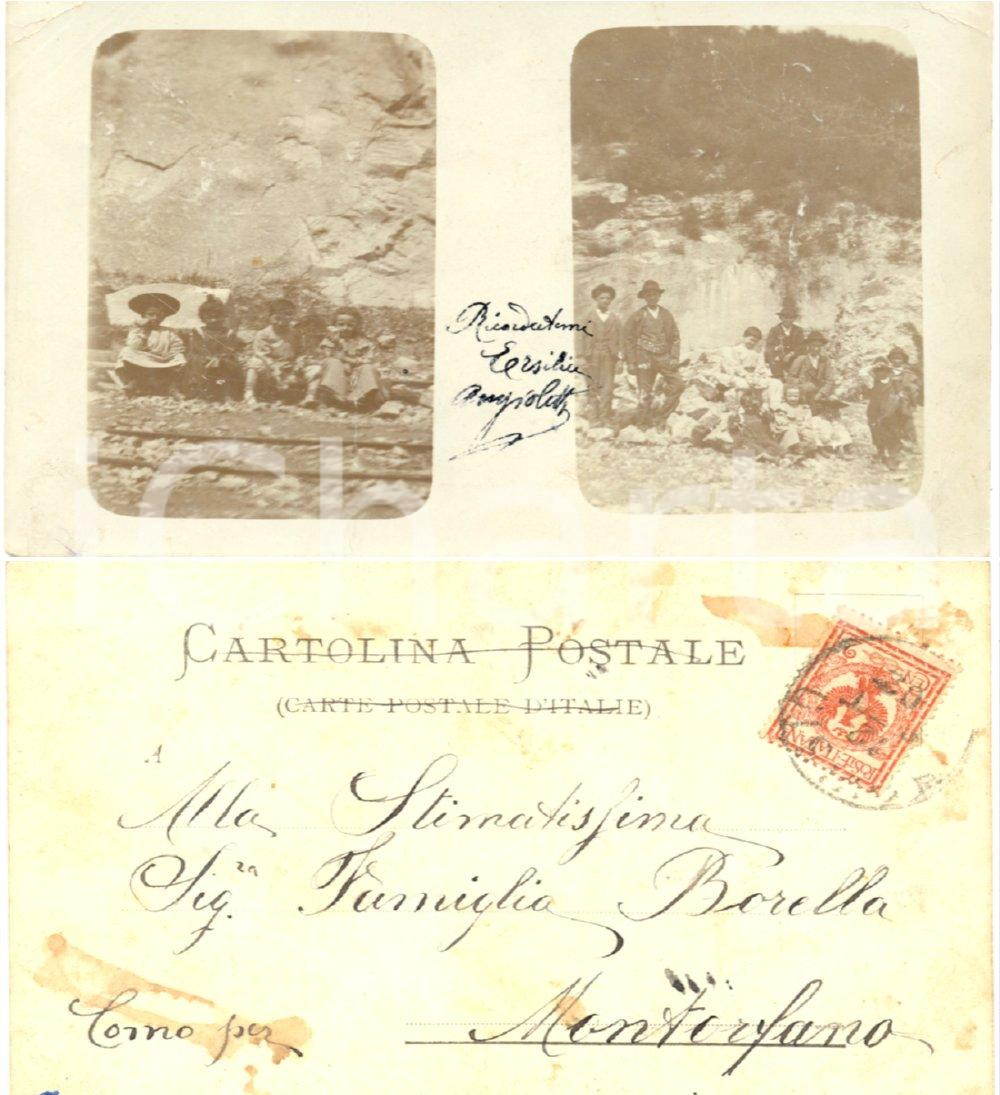 Ricordatemi
Ersilia
Angioletti
CARTOLINA POSTALE
(CARTE POSTALE D'ITALIE)
A
Alla Stimatissima
Sig.ra Famiglia Borella
Montorfano
Como per
POSTE ITALIANE
iCharta